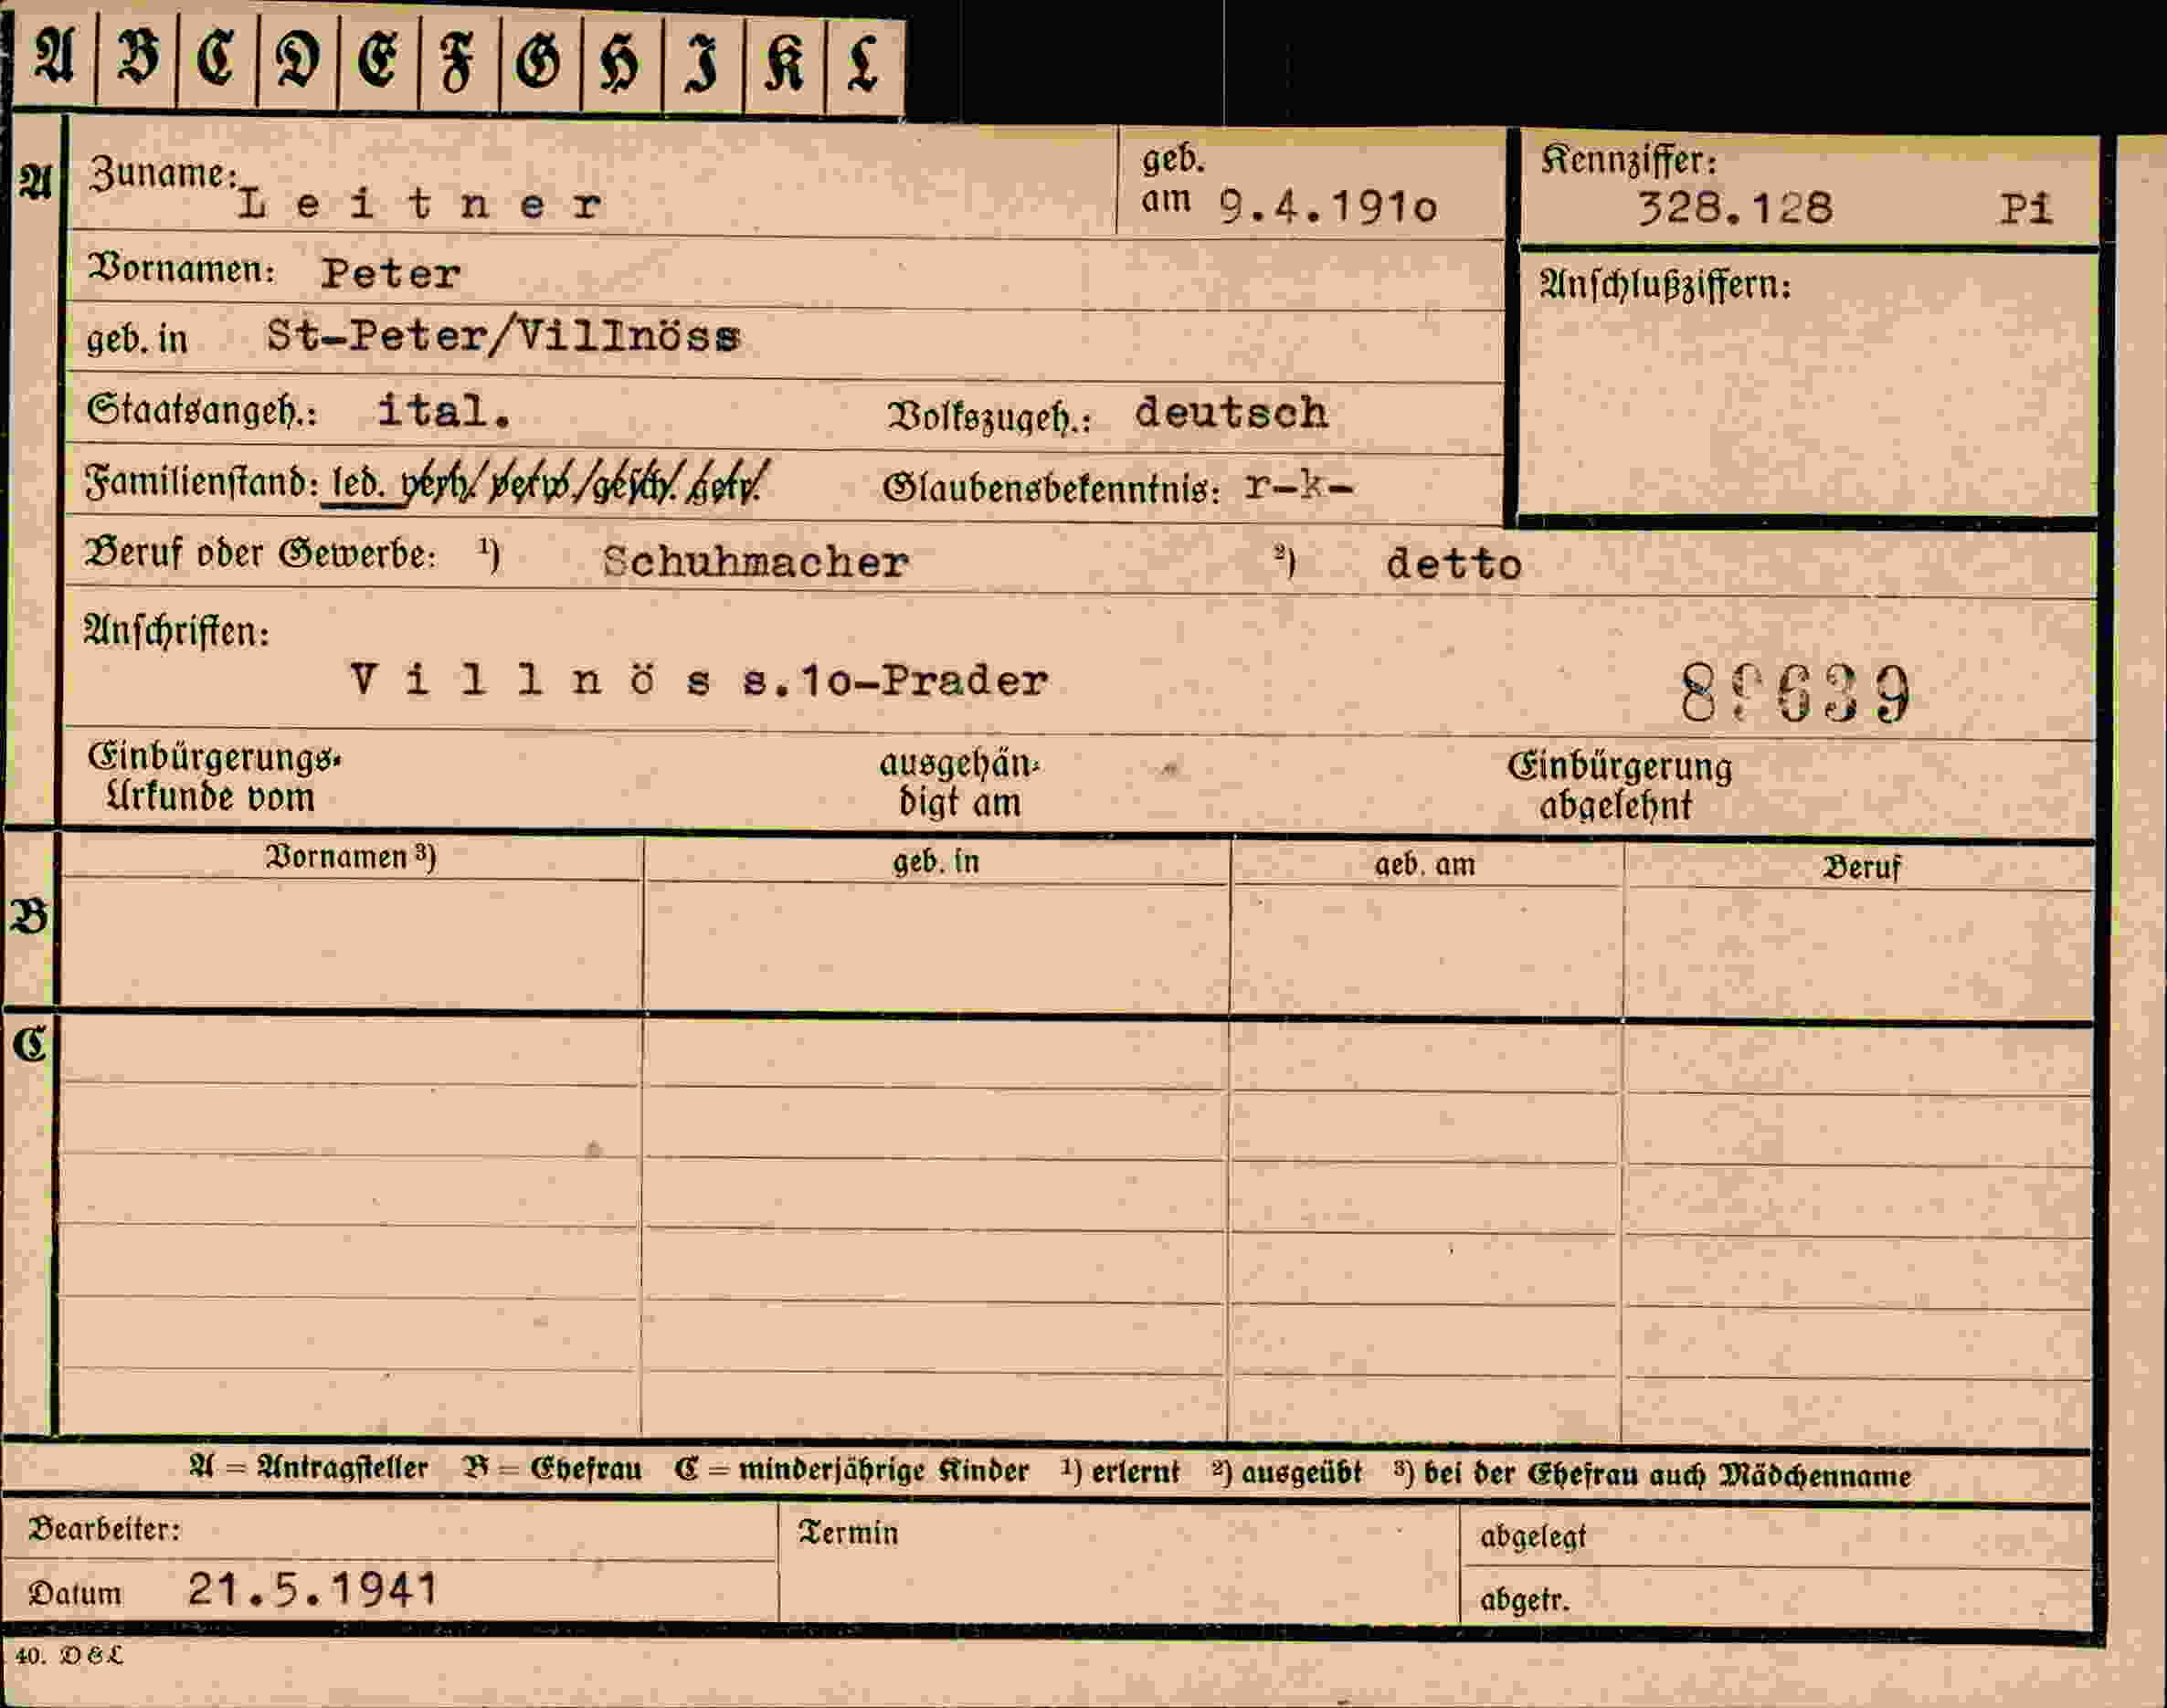 A B C D E F G H I K L
A
Zuname: Leitner
geb. am 9.4.191o
Kennziffer: 328.128 Pi
Vornamen: Peter
Anschlußziffern:
geb. in St-Peter/Villnöss
Staatsangeh.: ital. Volkszugeh.: deutsch
Familienstand: led. verh. verw. gesch. getr. Glaubensbekenntnis: r-k-
Beruf oder Gewerbe: ¹) Schuhmacher ²) detto
Anschriften:
Villnöss.1o-Prader
Einbürgerungs-
Urkunde vom
ausgehän-
digt am
Einbürgerung
abgelehnt
B
Vornamen ³) geb. in geb. am Beruf
C
A = Antragsteller B = Ehefrau C = minderjährige Kinder ¹) erlernt ²) ausgeübt ³) bei der Ehefrau auch Mädchenname
Bearbeiter: Termin abgelegt
Datum 21.5.1941 abgetr.
40. D&L